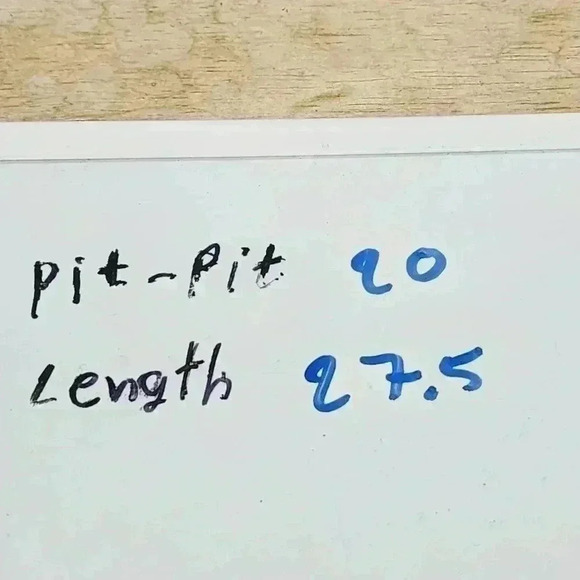 Pit-Pit 20
Length 27.5